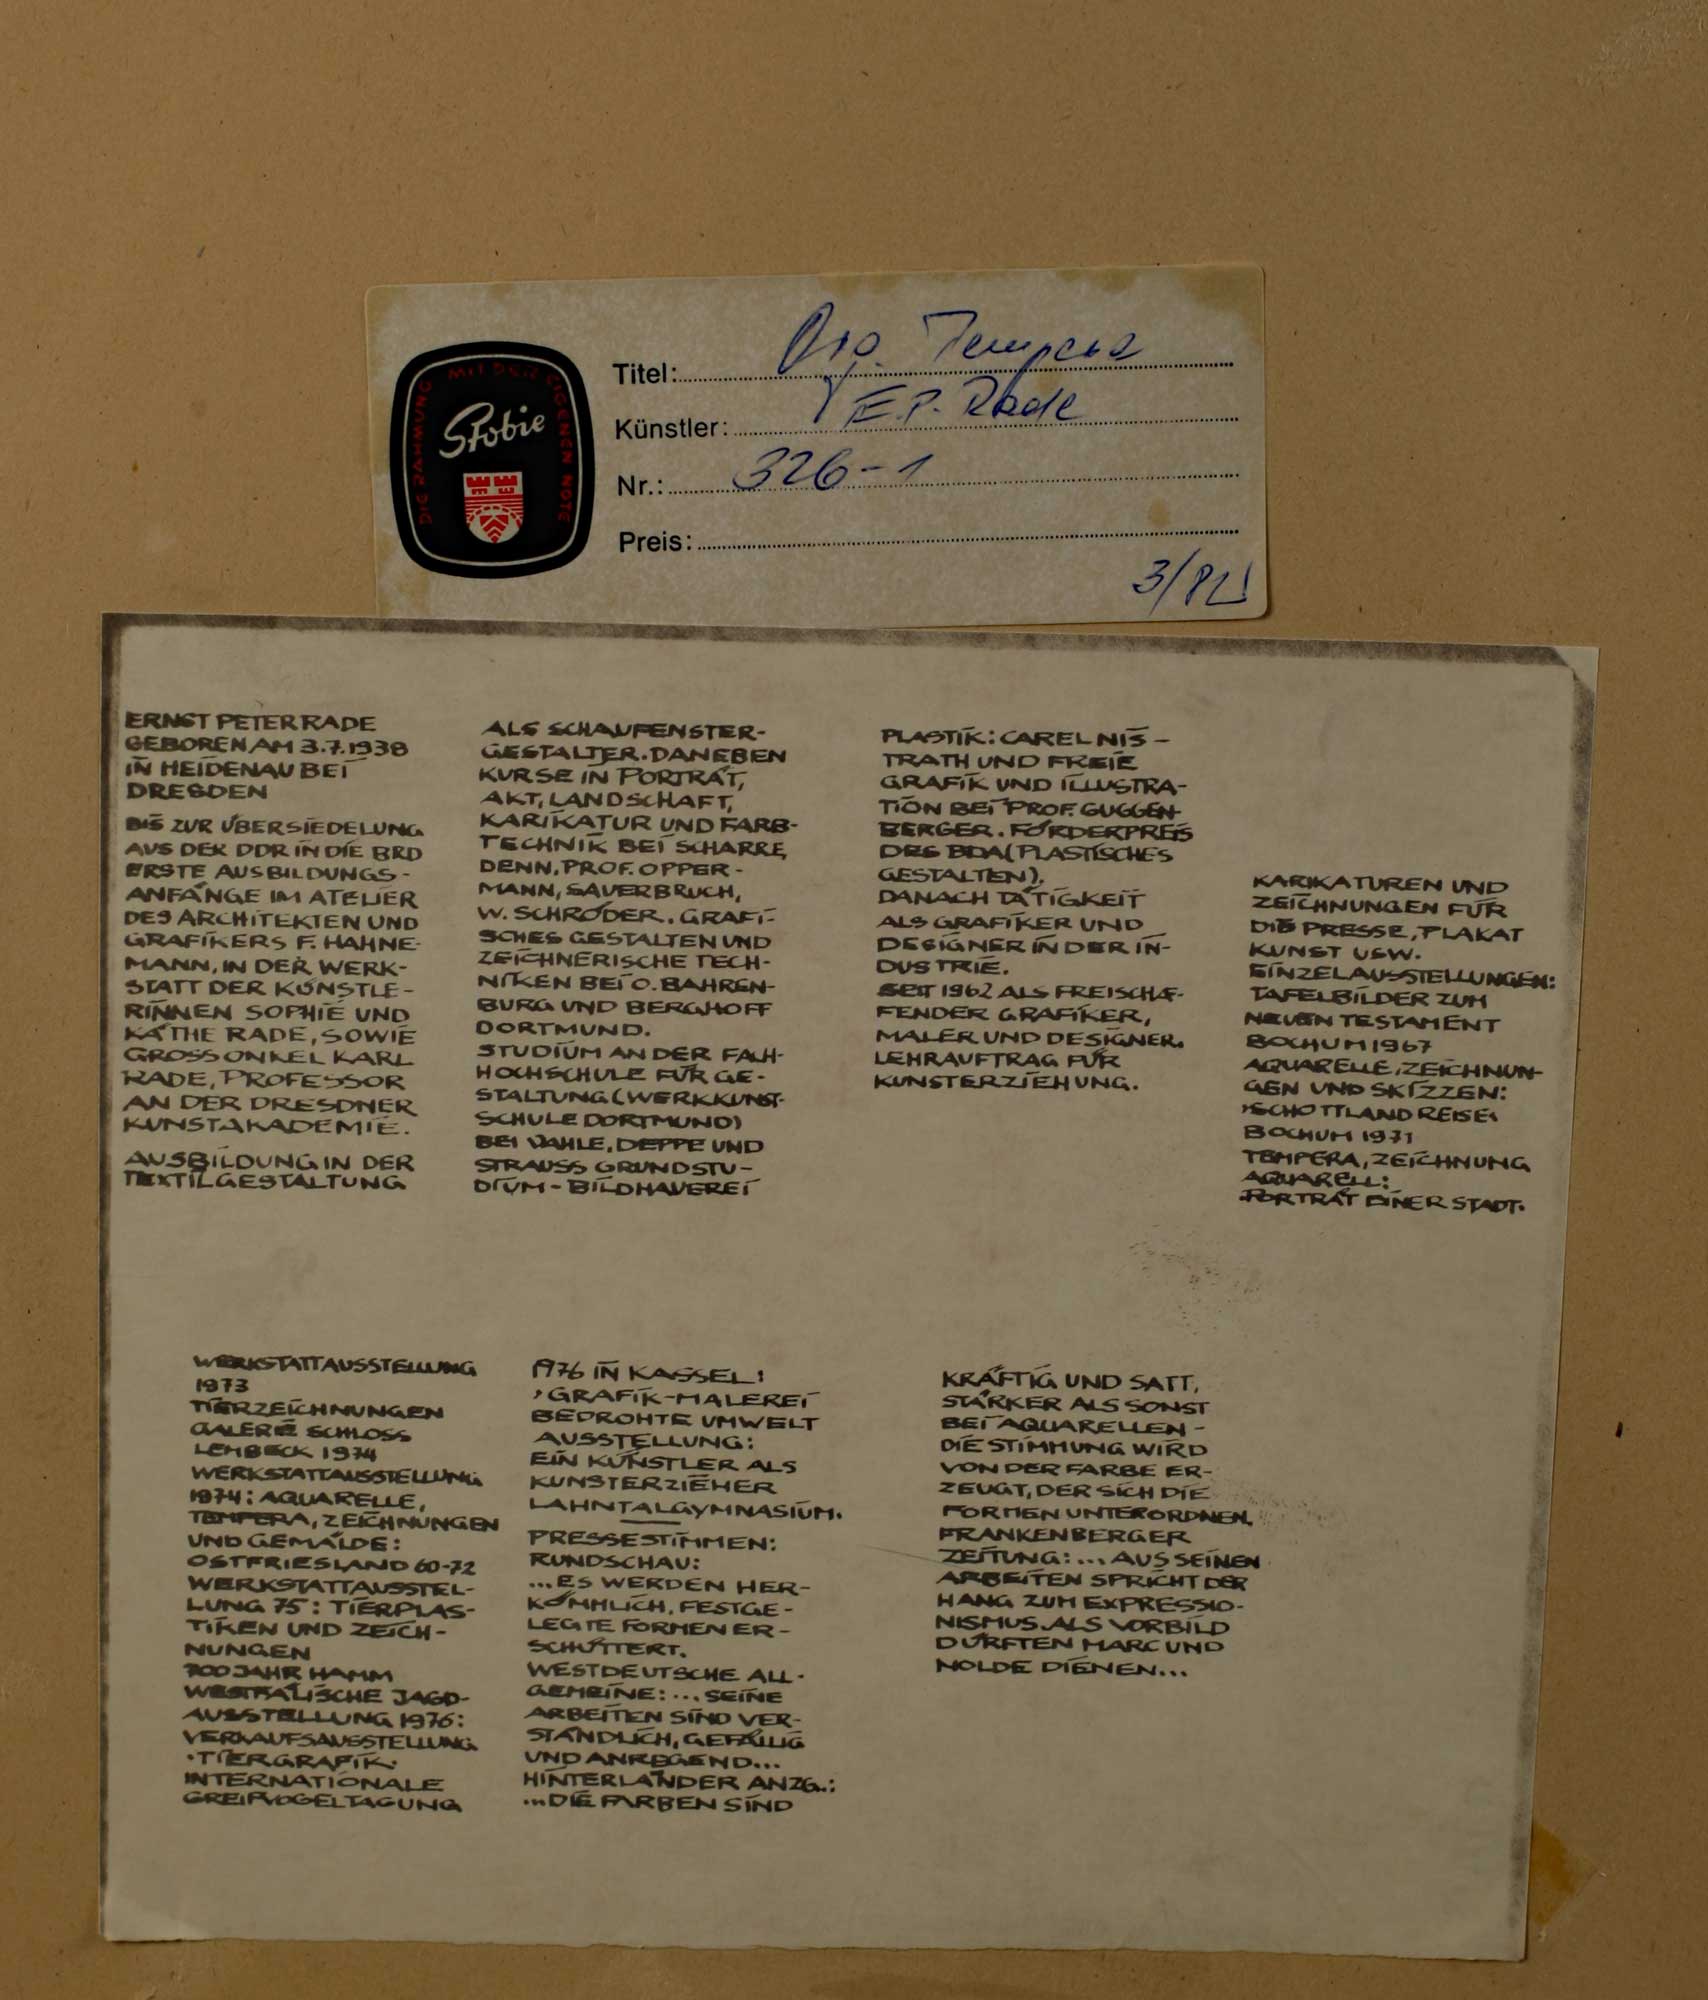 DIE RAHMUNG MIT DER EIGENEN NOTE
Stobie
Titel: Org. Tempera
Künstler: E.P. Rade
Nr.: 326-1
Preis:
3/82
ERNST PETER RADE
GEBOREN AM 3.7.1938
IN HEIDENAU BEI
DRESDEN
BIS ZUR ÜBERSIEDELUNG
AUS DER DDR IN DIE BRD
ERSTE AUSBILDUNGS-
ANFÄNGE IM ATELIER
DES ARCHITEKTEN UND
GRAFIKERS F. HAHNE-
MANN, IN DER WERK-
STATT DER KÜNSTLE-
RINNEN SOPHIE UND
KÄTHE RADE, SOWIE
GROSSONKEL KARL
RADE, PROFESSOR
AN DER DRESDNER
KUNSTAKADEMIE.
AUSBILDUNG IN DER
TEXTILGESTALTUNG
ALS SCHAUFENSTER-
GESTALTER. DANEBEN
KURSE IN PORTRÄT,
AKT, LANDSCHAFT,
KARIKATUR UND FARB-
TECHNIK BEI SCHARRE
DENN, PROF. OPPER-
MANN, SAUERBRUCH,
W. SCHRÖDER. GRAFI-
SCHES GESTALTEN UND
ZEICHNERISCHE TECH-
NIKEN BEI O. BAHREN-
BURG UND BERGHOFF
DORTMUND.
STUDIUM AN DER FACH-
HOCHSCHULE FÜR GE-
STALTUNG (WERKKUNST-
SCHULE DORTMUND)
BEI VAHLE, DEPPE UND
STRAUSS GRUNDSTU-
DIUM - BILDHAUEREI
PLASTIK: CAREL NIS-
TRATH UND FREIE
GRAFIK UND ILLUSTRA-
TION BEI PROF. GUGGEN-
BERGER. FÖRDERPREIS
DES BDA (PLASTISCHES
GESTALTEN).
DANACH TÄTIGKEIT
ALS GRAFIKER UND
DESIGNER IN DER IN-
DUSTRIE.
SEIT 1962 ALS FREISCHAF-
FENDER GRAFIKER,
MALER UND DESIGNER.
LEHRAUFTRAG FÜR
KUNSTERZIEHUNG.
KARIKATUREN UND
ZEICHNUNGEN FÜR
DIE PRESSE, PLAKAT
KUNST USW.
EINZELAUSSTELLUNGEN:
TAFELBILDER ZUM
NEUEN TESTAMENT
BOCHUM 1967
AQUARELLE, ZEICHNUN-
GEN UND SKIZZEN:
›SCHOTTLANDREISE‹
BOCHUM 1971
TEMPERA, ZEICHNUNG
AQUARELL:
›PORTRÄT EINER STADT‹
WERKSTATTAUSSTELLUNG
1973
TIERZEICHNUNGEN
GALERIE SCHLOSS
LEMBECK 1974
WERKSTATTAUSSTELLUNG
1974: AQUARELLE,
TEMPERA, ZEICHNUNGEN
UND GEMÄLDE:
OSTFRIESLAND 60-72
WERKSTATTAUSSTEL-
LUNG 75: TIERPLAS-
TIKEN UND ZEICH-
NUNGEN
700 JAHR HAMM
WESTFÄLISCHE JAGD-
AUSSTELLUNG 1976:
VERKAUFSAUSSTELLUNG
›TIERGRAFIK‹
INTERNATIONALE
GREIFVOGELTAGUNG
1976 IN KASSEL:
›GRAFIK-MALEREI
BEDROHTE UMWELT
AUSSTELLUNG:
EIN KÜNSTLER ALS
KUNSTERZIEHER
LAHNTALGYMNASIUM.
PRESSESTIMMEN:
RUNDSCHAU:
...ES WERDEN HER-
KÖMMLICH, FESTGE-
LEGTE FORMEN ER-
SCHÜTTERT.
WESTDEUTSCHE ALL-
GEMEINE: ... SEINE
ARBEITEN SIND VER-
STÄNDLICH, GEFÄLLIG
UND ANREGEND...
HINTERLÄNDER ANZG.:
...DIE FARBEN SIND
KRÄFTIG UND SATT,
STÄRKER ALS SONST
BEI AQUARELLEN -
DIE STIMMUNG WIRD
VON DER FARBE ER-
ZEUGT, DER SICH DIE
FORMEN UNTERORDNEN.
FRANKENBERGER
ZEITUNG: ... AUS SEINEN
ARBEITEN SPRICHT DER
HANG ZUM EXPRESSIO-
NISMUS. ALS VORBILD
DÜRFTEN MARC UND
NOLDE DIENEN...